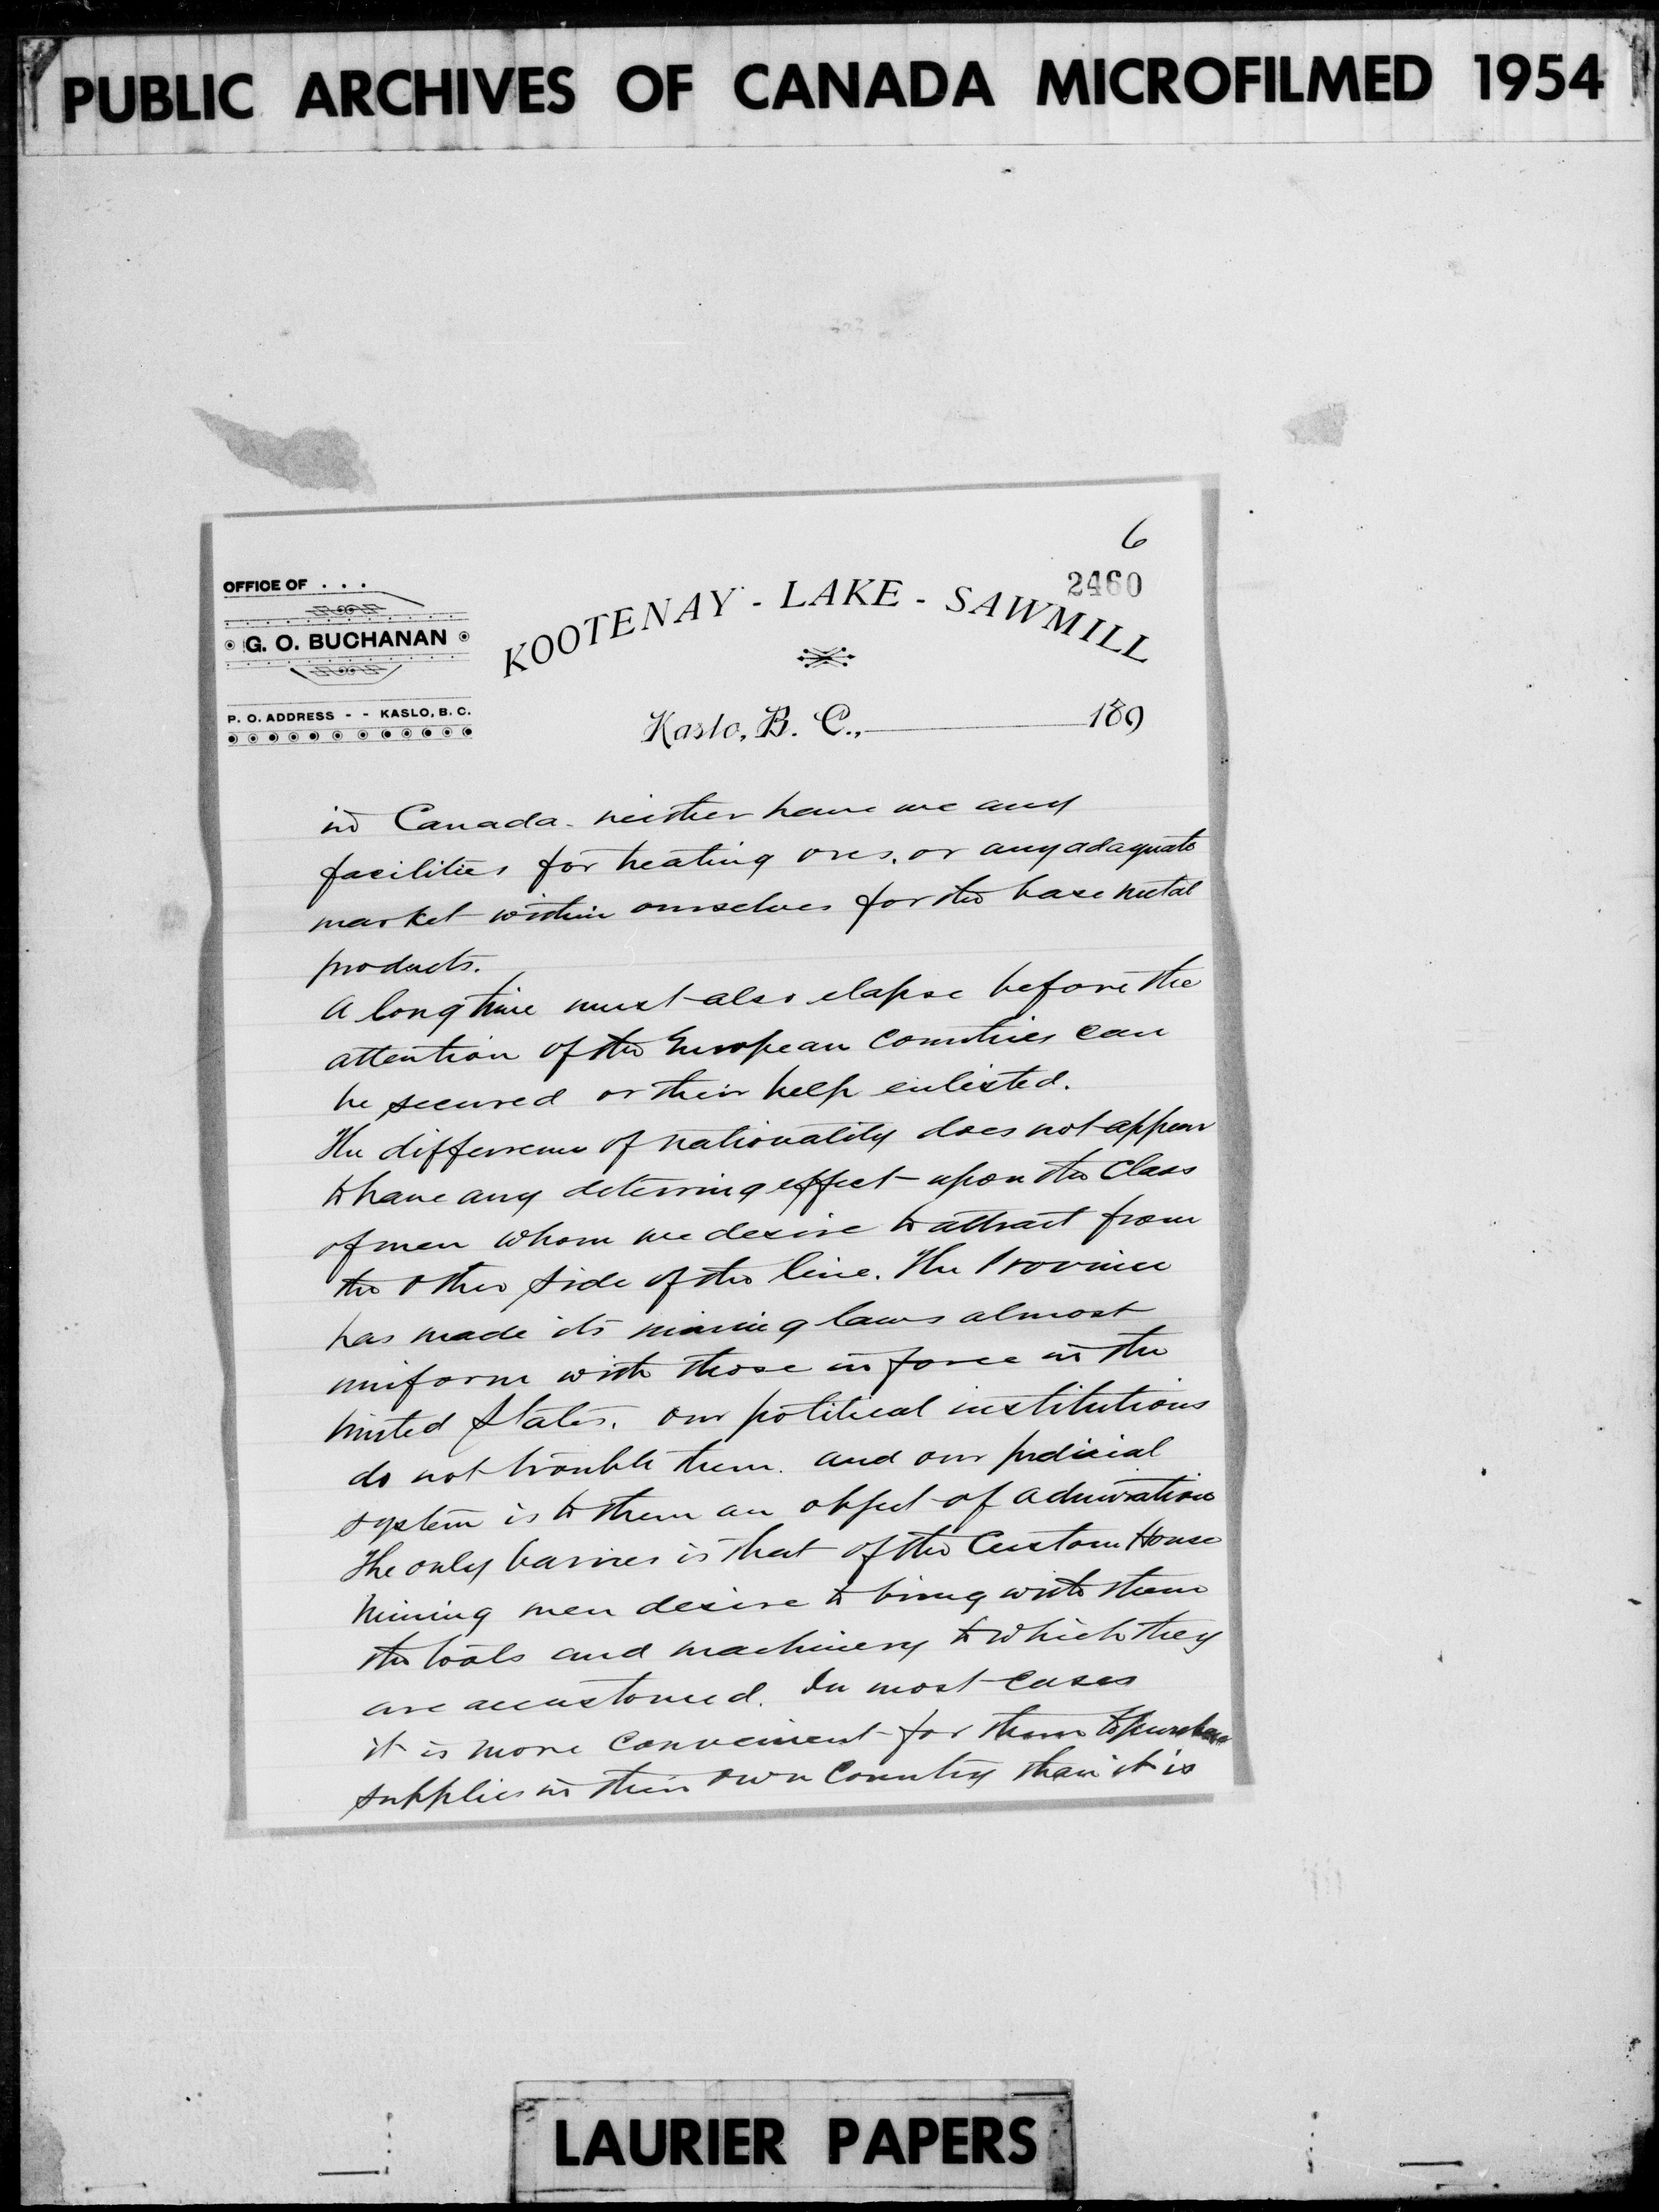 PUBLIC ARCHIVES OF CANADA MICROFILMED 1954
6
2460
OFFICE OF . . .
G. O. BUCHANAN
P. O. ADDRESS - - KASLO, B. C.
KOOTENAY - LAKE - SAWMILL
Kaslo, B. C., 189
in Canada. neither have we any
facilities for treating ores, or any adaquate
market within ourselves for the base metal
products.
A long time must also elapse before the
attention of the European Countries can
be secured or their help enlisted.
The difference of nationality does not appear
to have any deterring effect upon the Class
of men whom we desire to attract from
the other side of the line. The Province
has made its mining laws almost
uniform with those in force in the
United States. Our political institutions
do not trouble them. and our judicial
system is to them an object of admiration
The only barrier is that of the Custom House
Mining men desire to bring with them
the tools and machinery to which they
are accustomed. In most cases
it is more convenient for them to purchase
supplies in their own Country than it is
LAURIER PAPERS